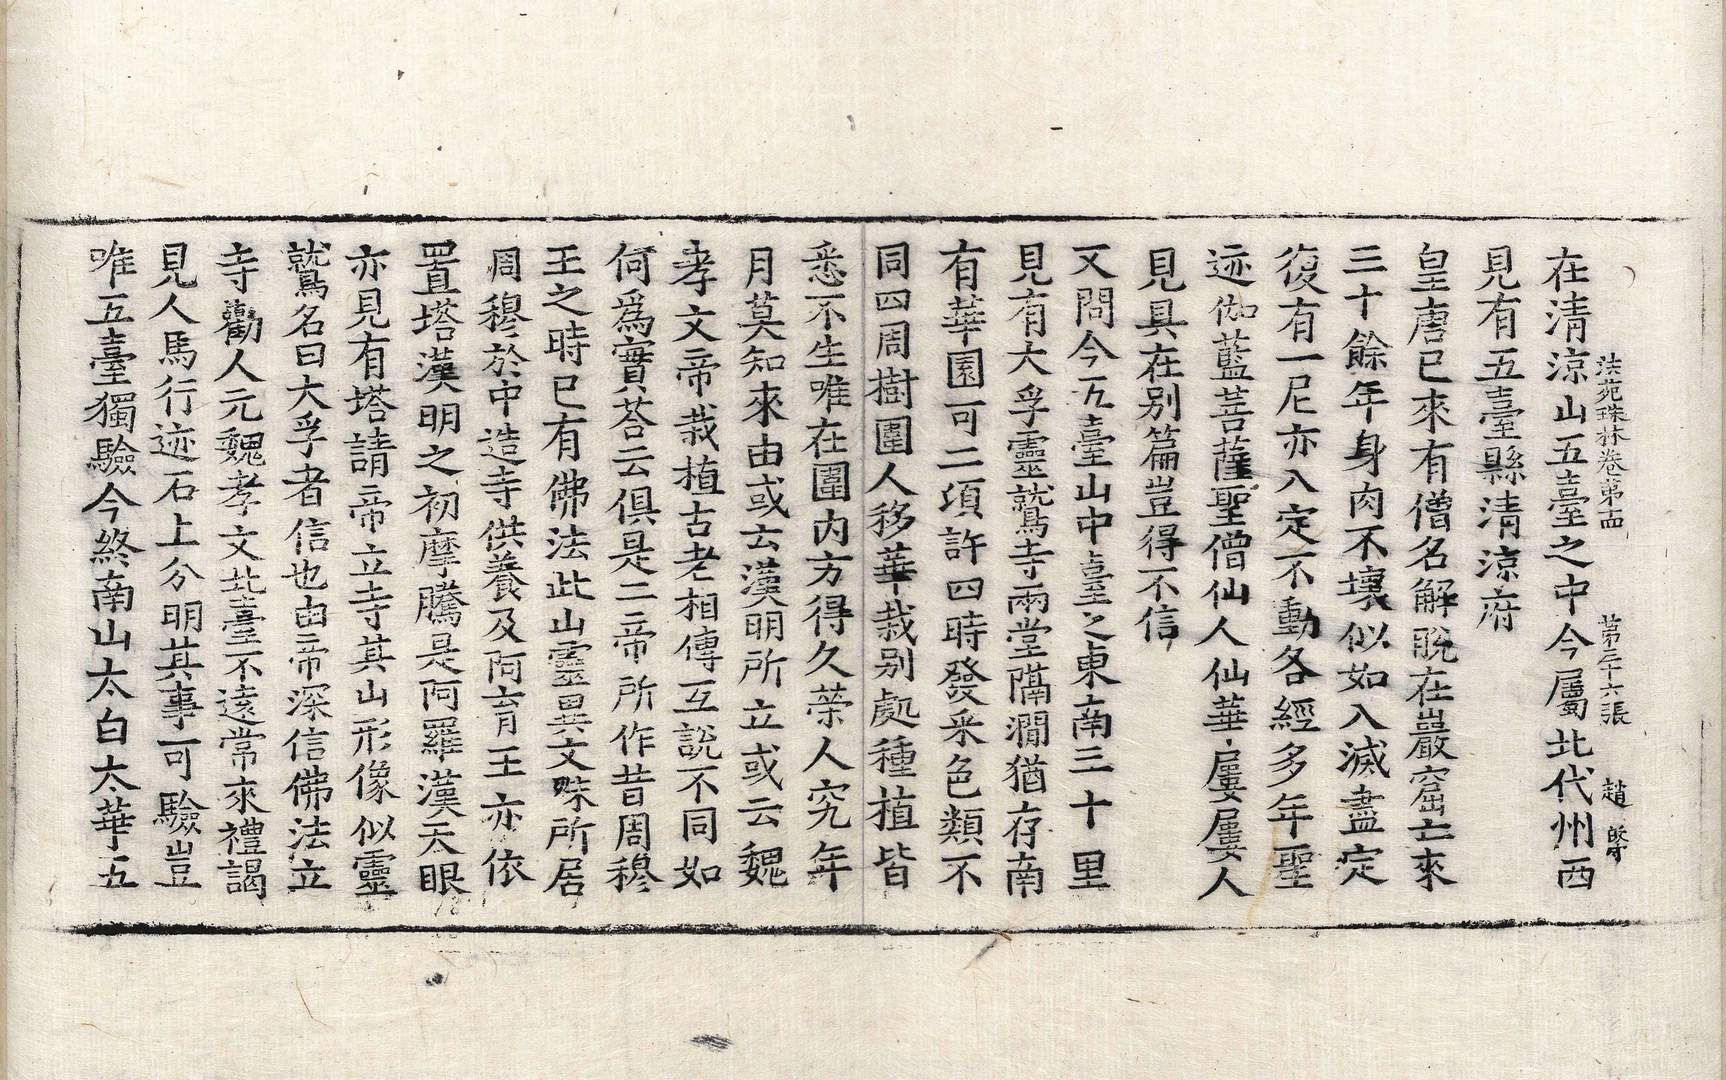 法苑珠林卷第十四　第三十六張　趙
在清涼山五臺之中今屬北代州西
見有五臺縣清涼府
皇唐已來有僧名解脫在巖窟亡來
三十餘年身肉不壞似如入滅盡定
復有一尼亦入定不動各經多年聖
迹伽藍菩薩聖僧仙人仙華屢屢人
見具在別篇豈得不信
又問今五臺山中臺之東南三十里
見有大孚靈鷲寺兩堂隔澗猶存南
有華園可二項許四時發采色類不
同四周樹圍人移華栽別處種植皆
悉不生唯在園內方得久榮人究年
月莫知來由或云漢明所立或云魏
孝文帝栽植古老相傳互說不同如
何為實答云俱是二帝所作昔周穆
王之時已有佛法此山靈異文殊所居
周穆於中造寺供養及阿育王亦依
置塔漢明之初摩騰是阿羅漢天眼
亦見有塔請帝立寺其山形像似靈
鷲名曰大孚者信也由帝深信佛法立
寺勸人元魏孝文北臺不遠常來禮謁
見人馬行迹石上分明其事可驗豈
唯五臺獨驗今終南山太白太華五